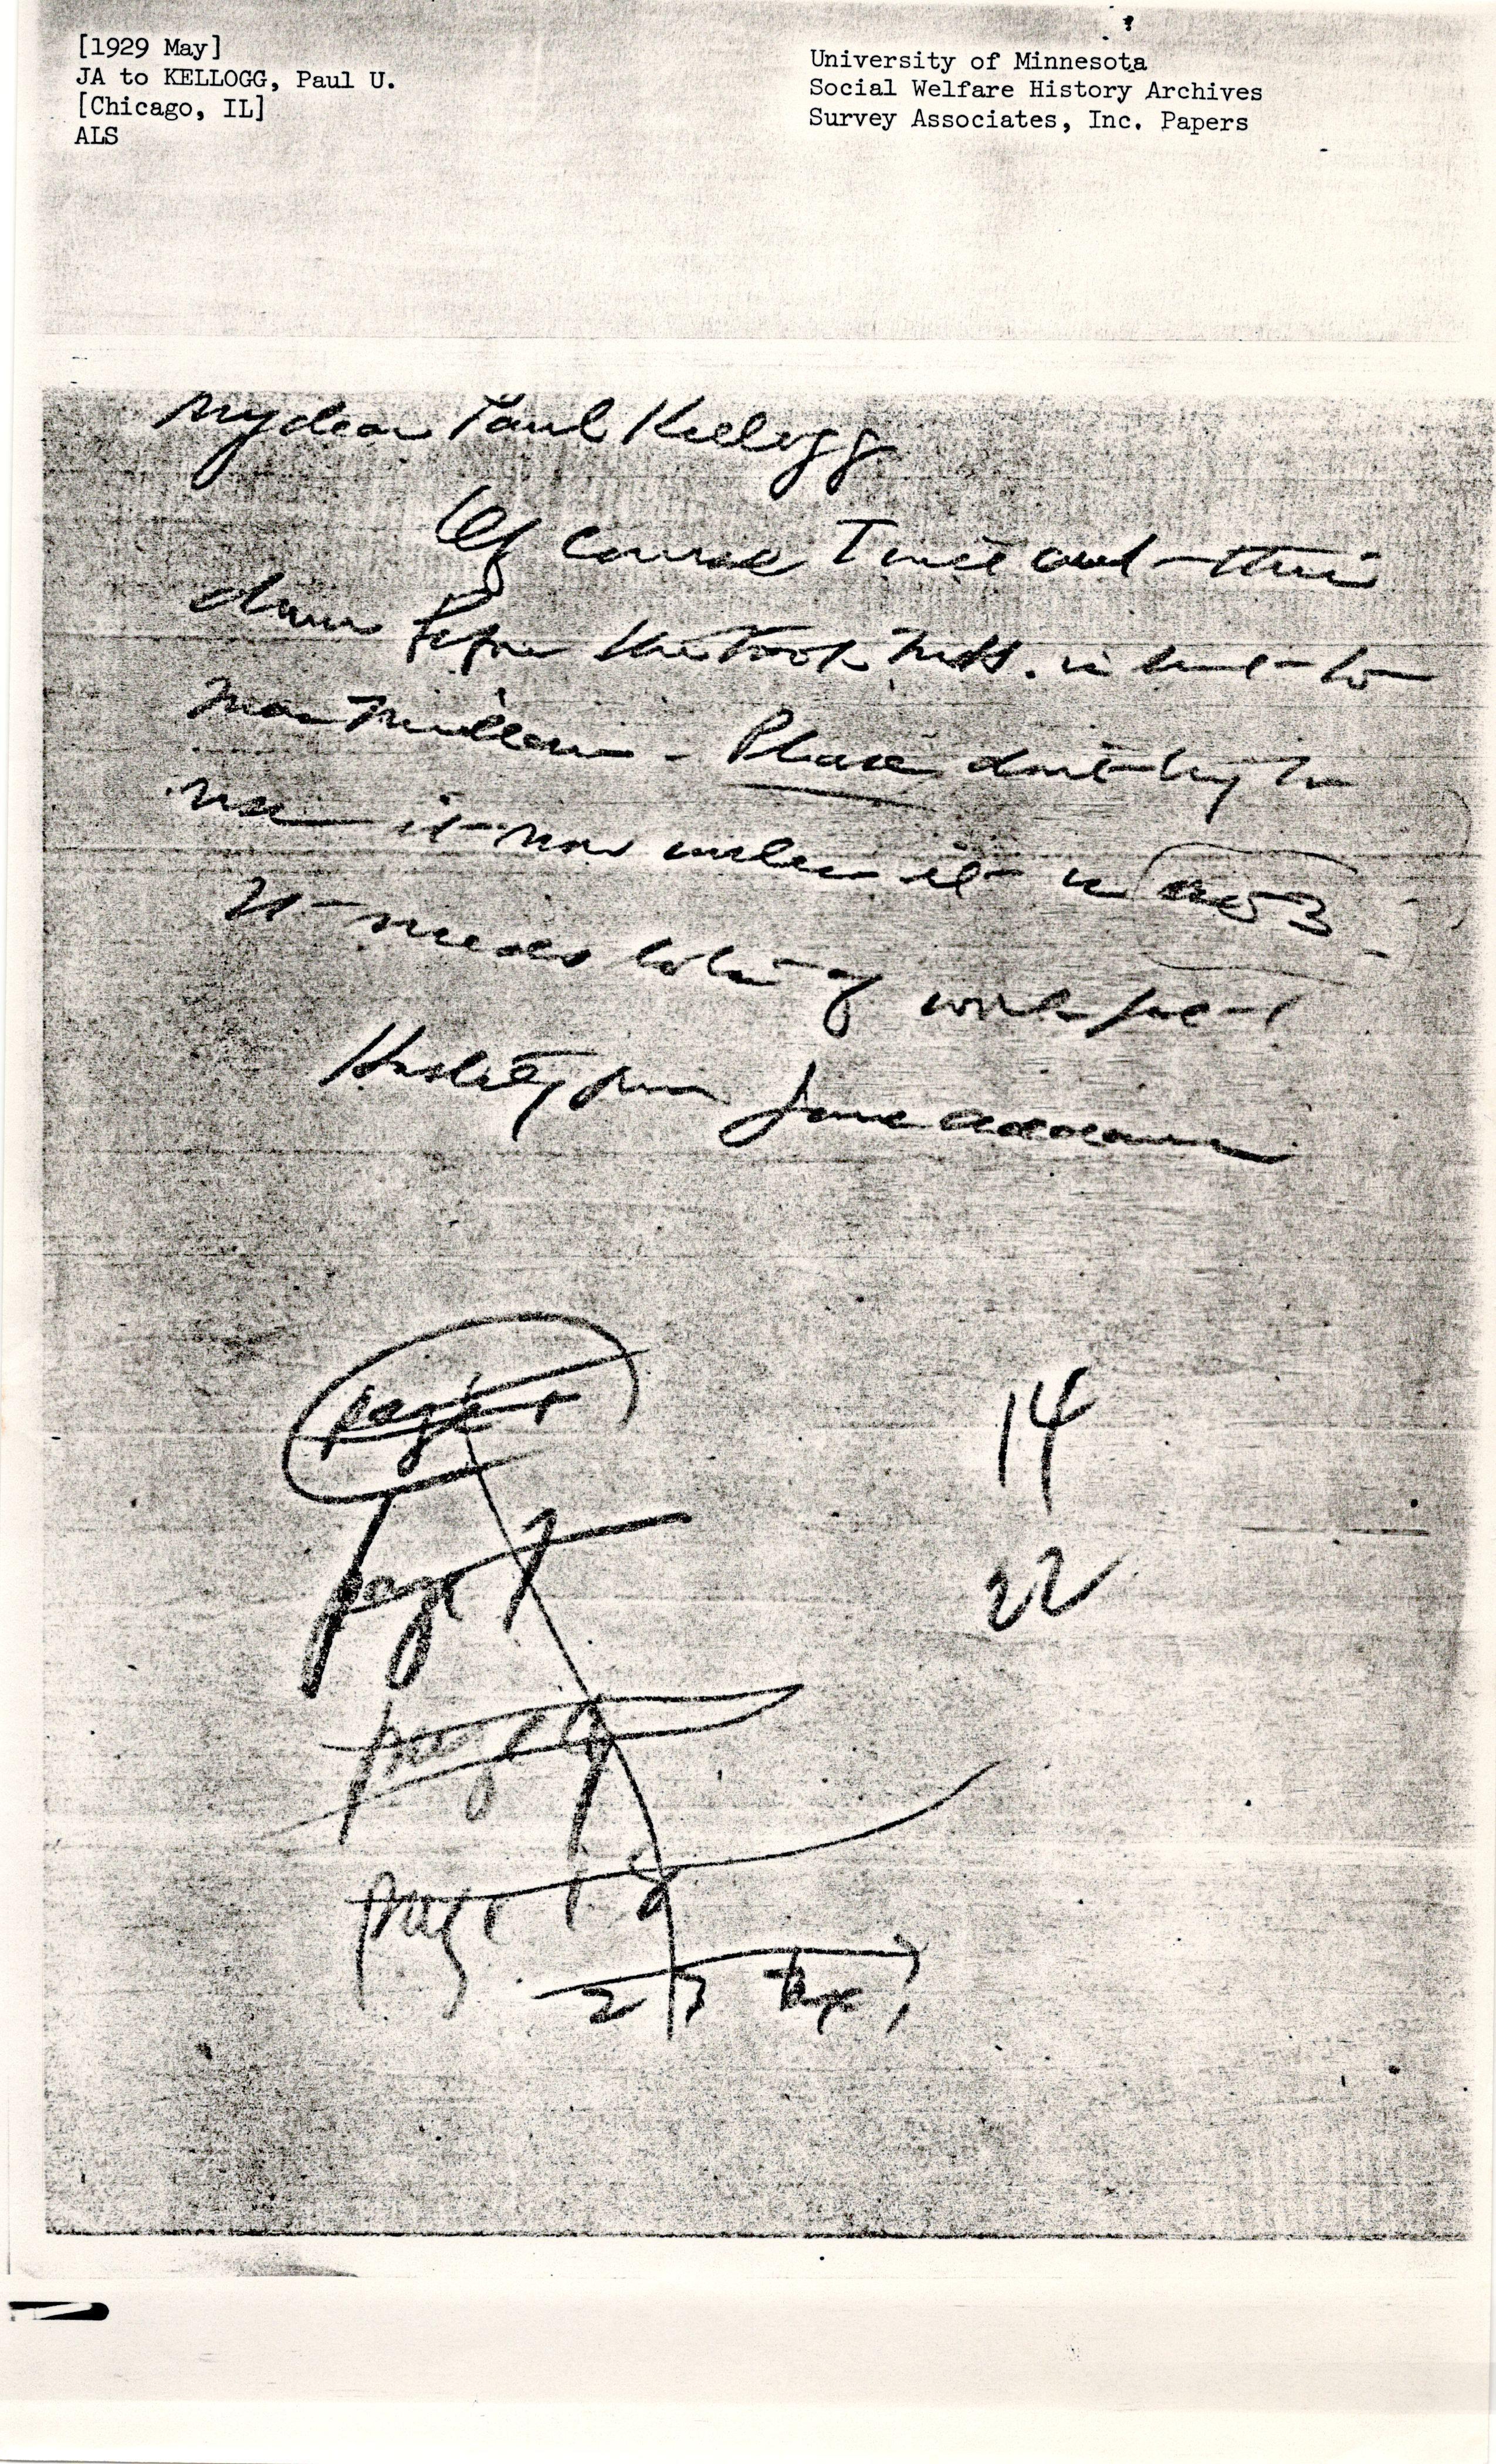 [1929 May]
JA to KELLOGG, Paul U.
[Chicago, IL]
ALS
University of Minnesota
Social Welfare History Archives
Survey Associates, Inc. Papers
My dear Paul Kellogg
Of course I will cut this
down before the book Mss. is sent to
MacMillan - Please don't try to
use it now unless it is
It needs lots of work yet
Hastily yours Jane Addams
page
14
page 7
22
page 9
page 12